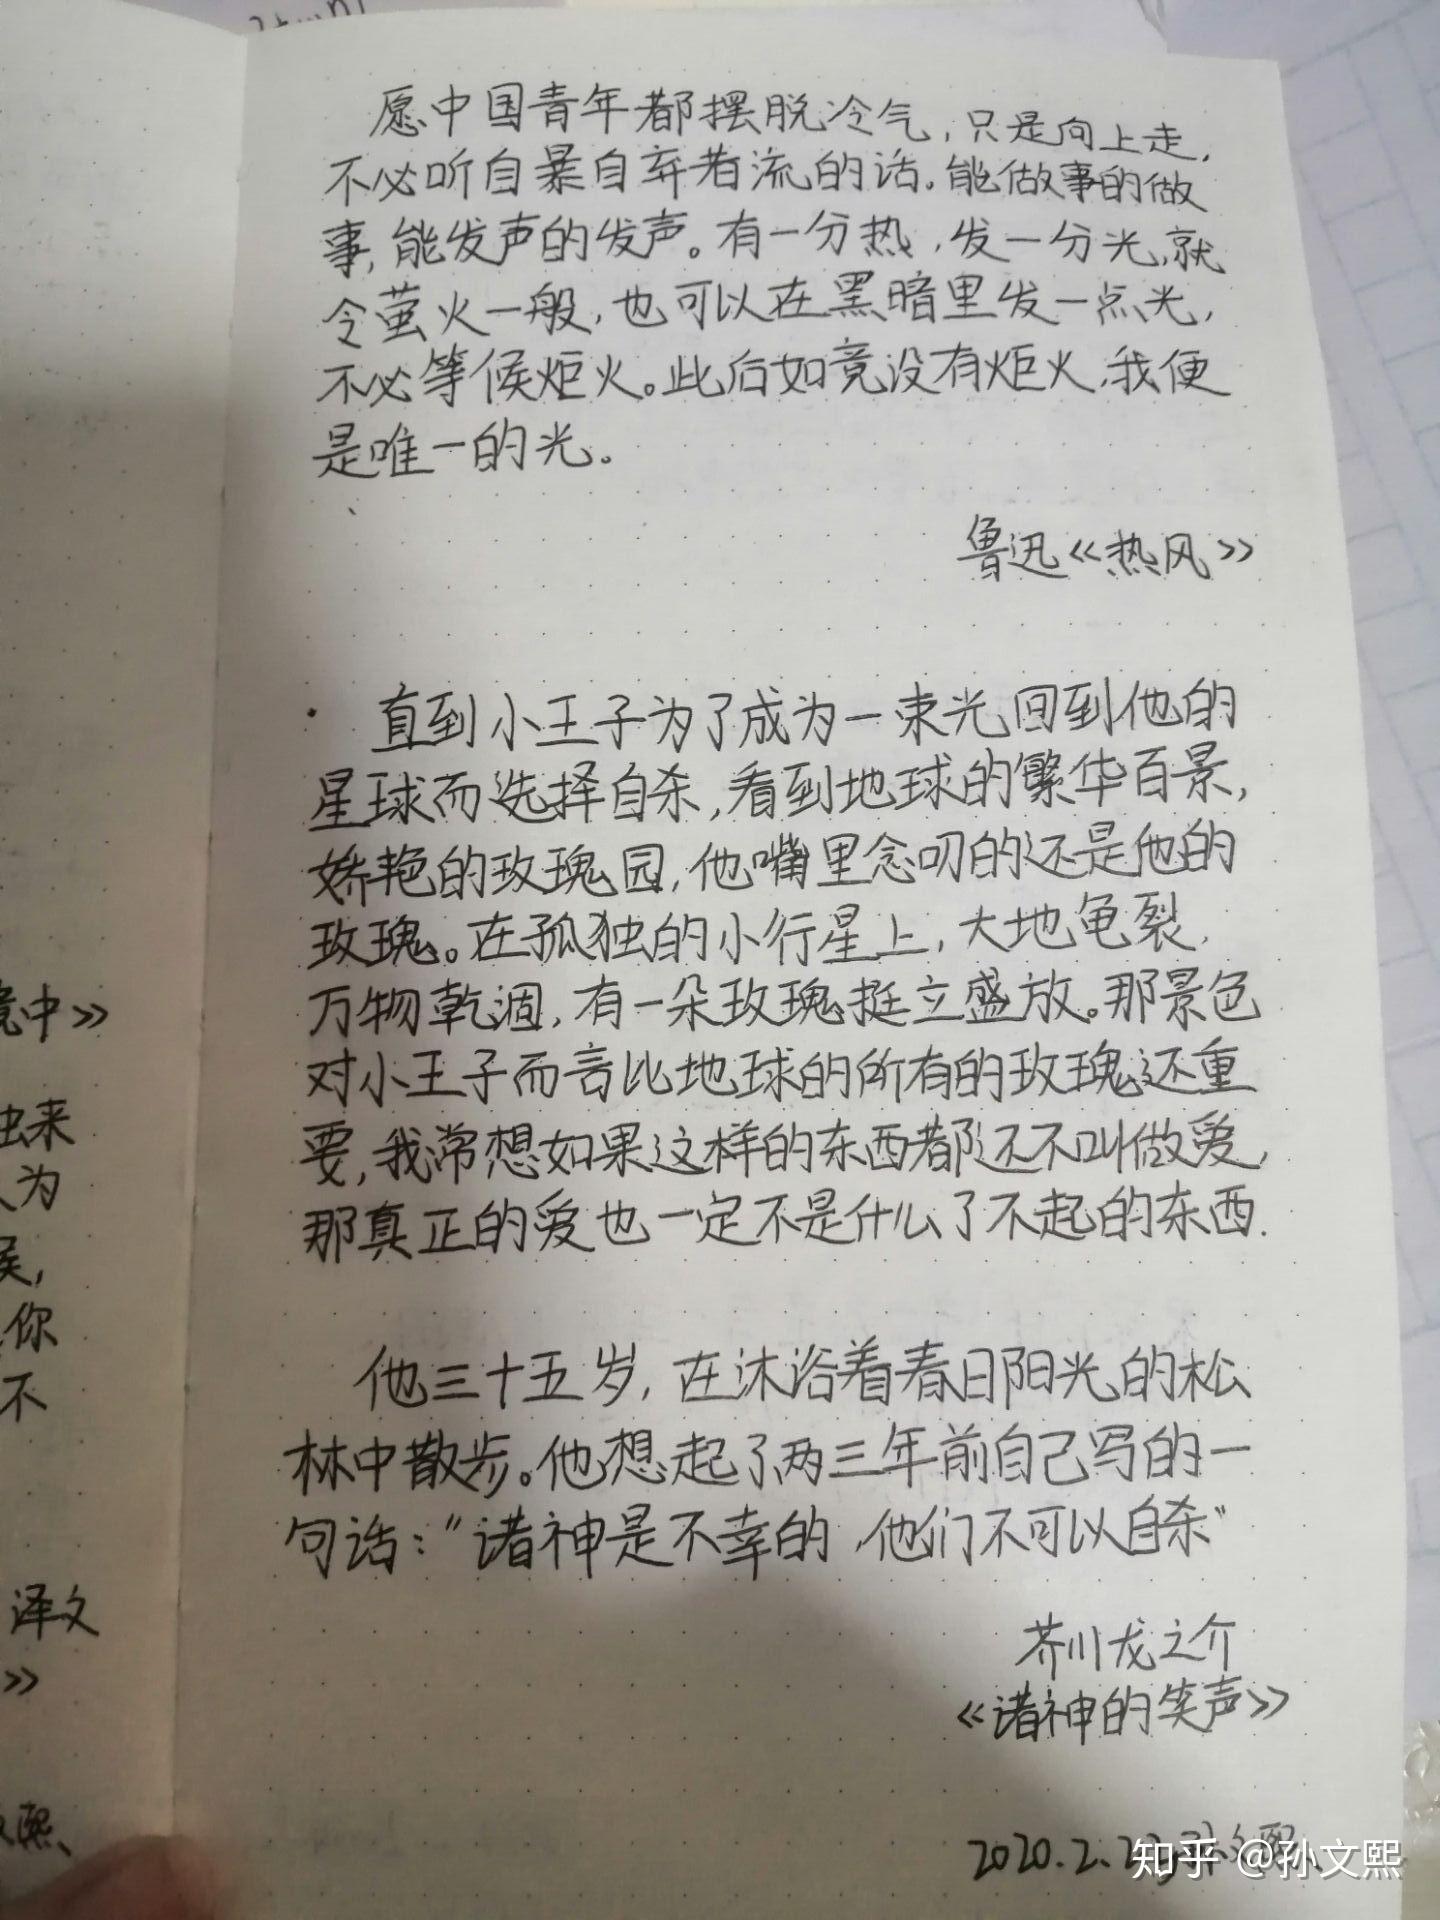 愿中国青年都摆脱冷气,只是向上走,
不必听自暴自弃者流的话。能做事的做
事,能发声的发声。有一分热,发一分光,就
令萤火一般,也可以在黑暗里发一点光,
不必等候炬火。此后如竟没有炬火,我便
是唯一的光。
鲁迅《热风》
直到小王子为了成为一束光回到他的
星球而选择自杀,看到地球的繁华百景,
娇艳的玫瑰园,他嘴里念叨的还是他的
玫瑰。在孤独的小行星上,大地龟裂,
万物乾涸,有一朵玫瑰挺立盛放。那景色
对小王子而言比地球的所有的玫瑰还重
要,我常想如果这样的东西都还不叫做爱,
那真正的爱也一定不是什么了不起的东西.
他三十五岁,在沐浴着春日阳光的松
林中散步。他想起了两三年前自己写的一
句话:"诸神是不幸的,他们不可以自杀"
芥川龙之介
《诸神的笑声》
2020.2.
知乎 @孙文熙
竟中》
虫来
为
你
不
译文
》
熙、